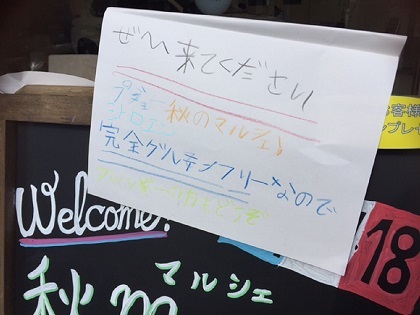 ぜひ来てください
プジョー
シトロエン
秋のマルシェ♪
完全グルテンフリーなので
アレルギーの方もどうぞ
Welcome!
マルシェ
秋の
18
お客様
プレ